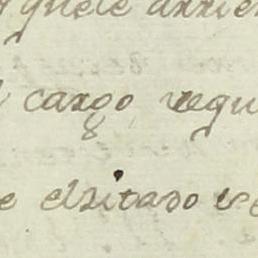 y quele arrien
cargo regu
e elsitado